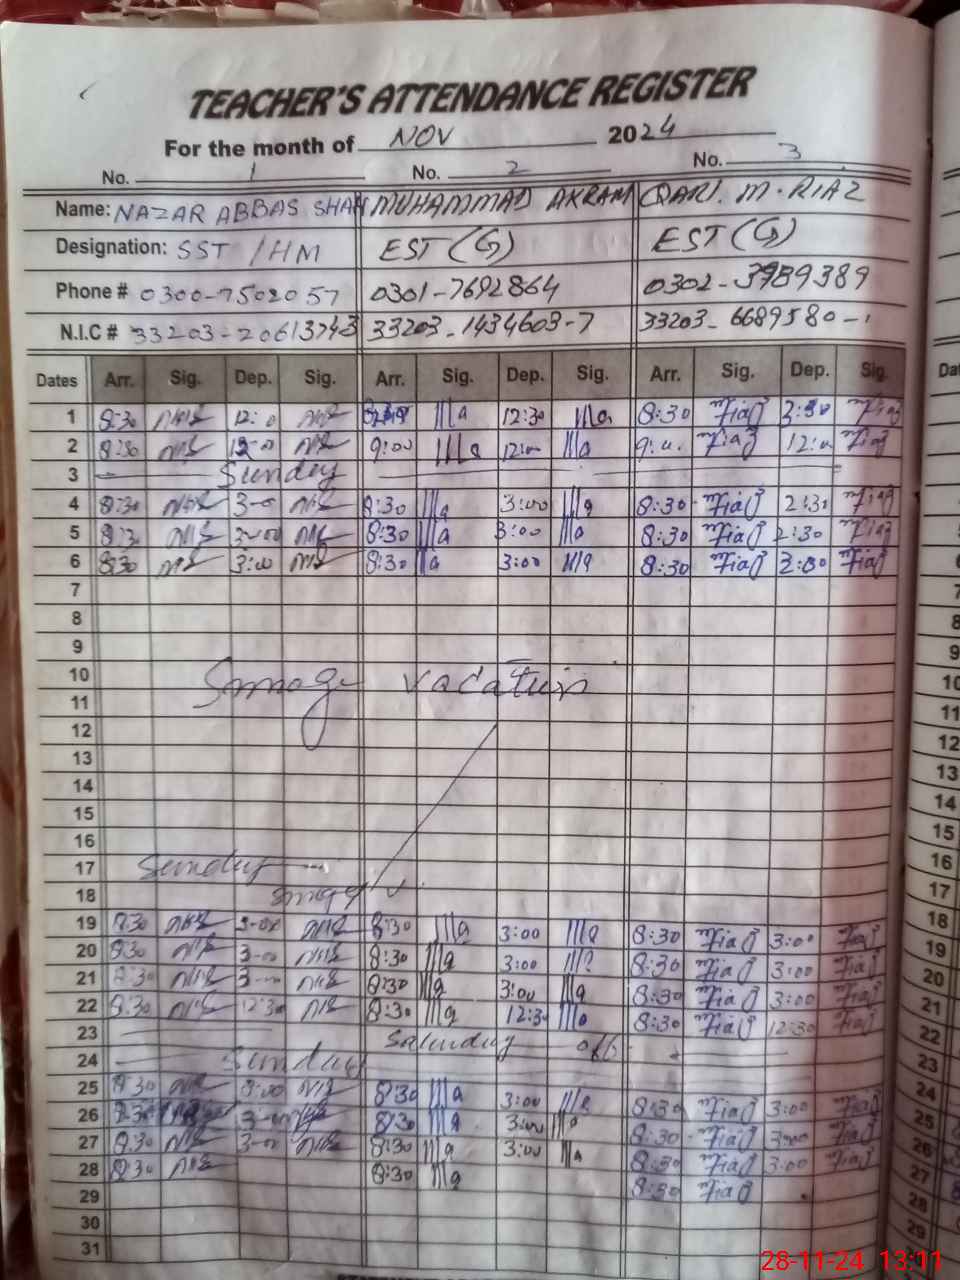 TEACHER'S ATTENDANCE REGISTER
For the month of NOV 2024
No. 1 No. 2 No. 3
Name: NAZAR ABBAS SHAH MUHAMMAD AKRAM QARI. M. RIAZ
Designation: SST / HM EST (G) EST (G)
Phone # 0300-7502057 0301-7692864 0302-3989389
N.I.C # 33203-20613743 33203-1434603-7 33203-6689580-1
Dates Arr. Sig. Dep. Sig. Arr. Sig. Dep. Sig. Arr. Sig. Dep. Sig.
1 8:30 12:0 12:30 8:30 Riaz Riaz
2 8:30 12-00 9:00 12:00 Riaz 12:00 Riaz
3 Sunday
4 8:30 3-00 8:30 3:00 8:30 Riaz 2:30 Riaz
5 8:30 3-00 8:30 3:00 8:30 Riaz 2:30 Riaz
6 8:30 3:00 8:30 3:00 8:30 Riaz Riaz
7
8
9
10 Smoge vacation
11
12
13
14
15
16
17 Sunday
18 Smoge v.
19 8:30 3-00 8:30 3:00 8:30 Riaz 3:00 Riaz
20 8:30 3-00 8:30 3:00 8:30 Riaz 3:00 Riaz
21 8:30 3-00 8:30 3:00 8:30 Riaz 3:00 Riaz
22 8:30 12:30 8:30 12:30 8:30 Riaz 12:30 Riaz
23 Saturday off
24 Sunday
25 8:30 3:00 8:30 3:00 8:30 Riaz 3:00 Riaz
26 8:30 3-00 8:30 3:00 8:30 Riaz 3:00 Riaz
27 8:30 3-00 8:30 3:00 8:30 Riaz 3:00 Riaz
28 8:30 8:30 8:30 Riaz
29
30
31
28-11-24 13:11